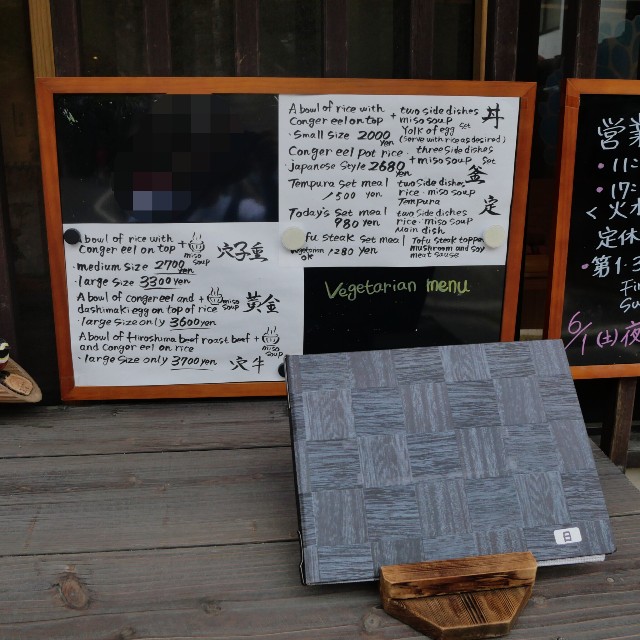 A bowl of rice with two side dishes 丼
Conger eel on top + miso soup
Yolk of egg set
・Small size 2000 yen (Serve with rice as desired)
Conger eel pot rice three side dishes
・Japanese style 2680 yen + miso soup set 釜
Tempura set meal two side dishes
1500 yen rice・miso soup
Tempura 定
Today's set meal two side dishes
980 yen rice・miso soup
Main dish
fu steak set meal Tofu steak topped
ok 1280 yen mushroom and soy
meat sause
A bowl of rice with
Conger eel on top + miso soup 穴子重
・medium size 2700 yen
・large size 3300 yen
A bowl of Conger eel and + miso soup 黄金
dashimaki egg on top of rice
・large size only 3600 yen
A bowl of Hiroshima beef roast beef +
and Conger eel on rice miso soup
・large size only 3700 yen 穴牛
Vegetarian menu
営業
・11:
・17:
< 火木
定休
・第1・3
6/1(土)夜
日